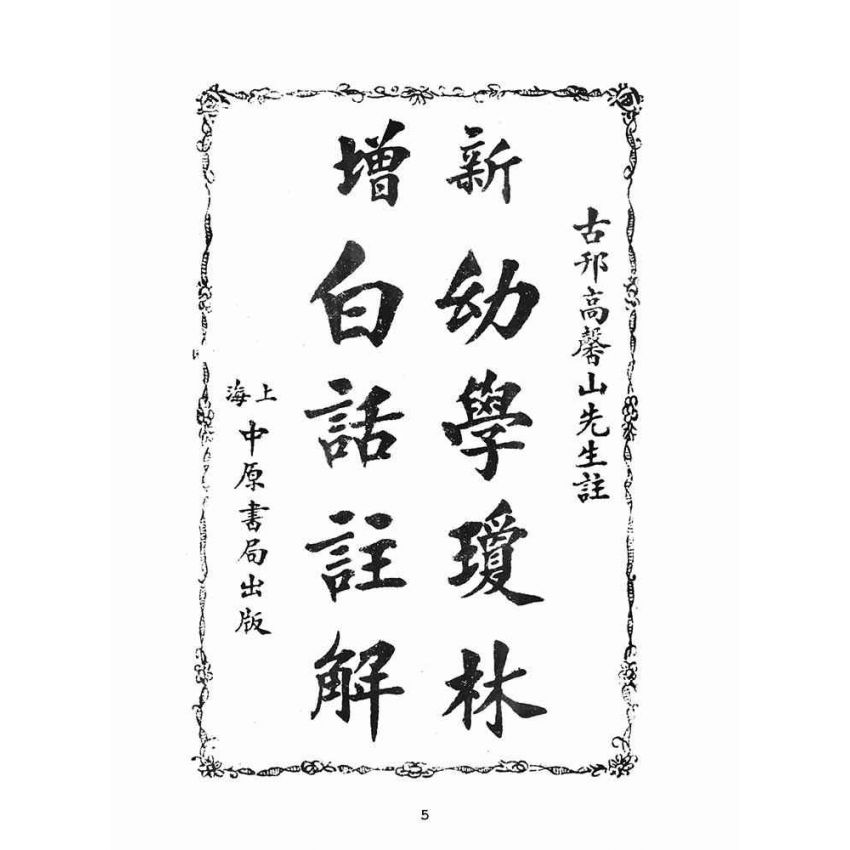 古邗高馨山先生註
新增
幼學瓊林
白話註解
上海
中原書局出版
5